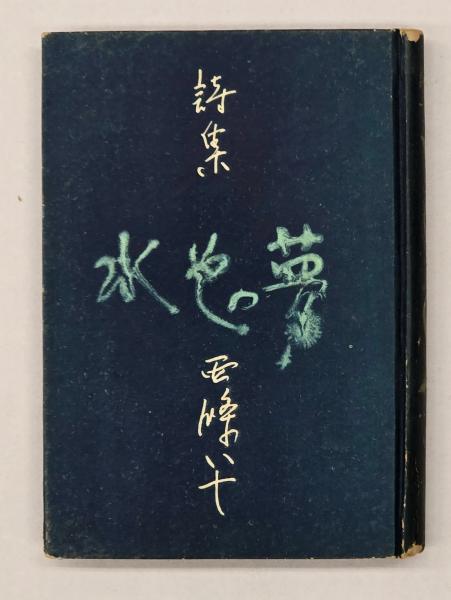 詩集
水色の夢
西條八十